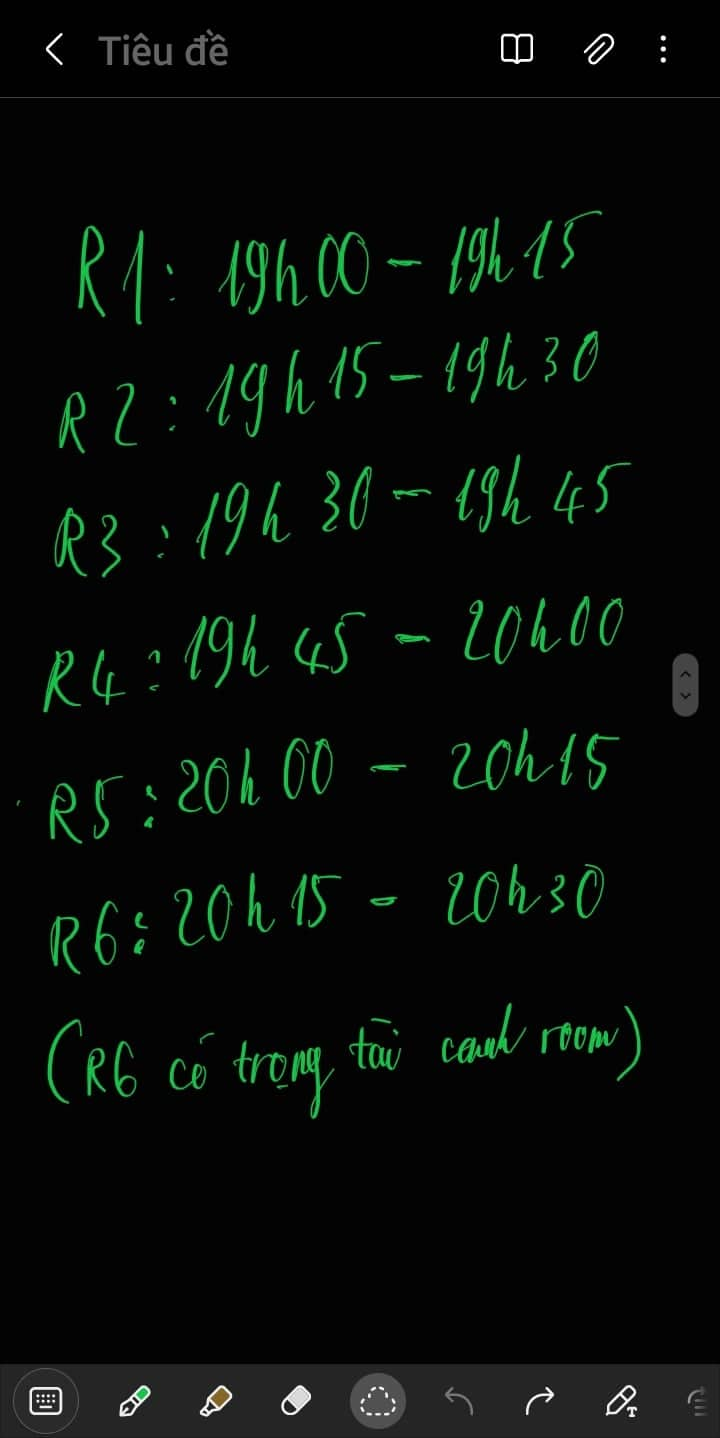 Tiêu đề
R1: 19h00 - 19h15
R2: 19h15 - 19h30
R3: 19h30 - 19h45
R4: 19h45 - 20h00
R5: 20h00 - 20h15
R6: 20h15 - 20h30
(R6 có trọng tài canh room)